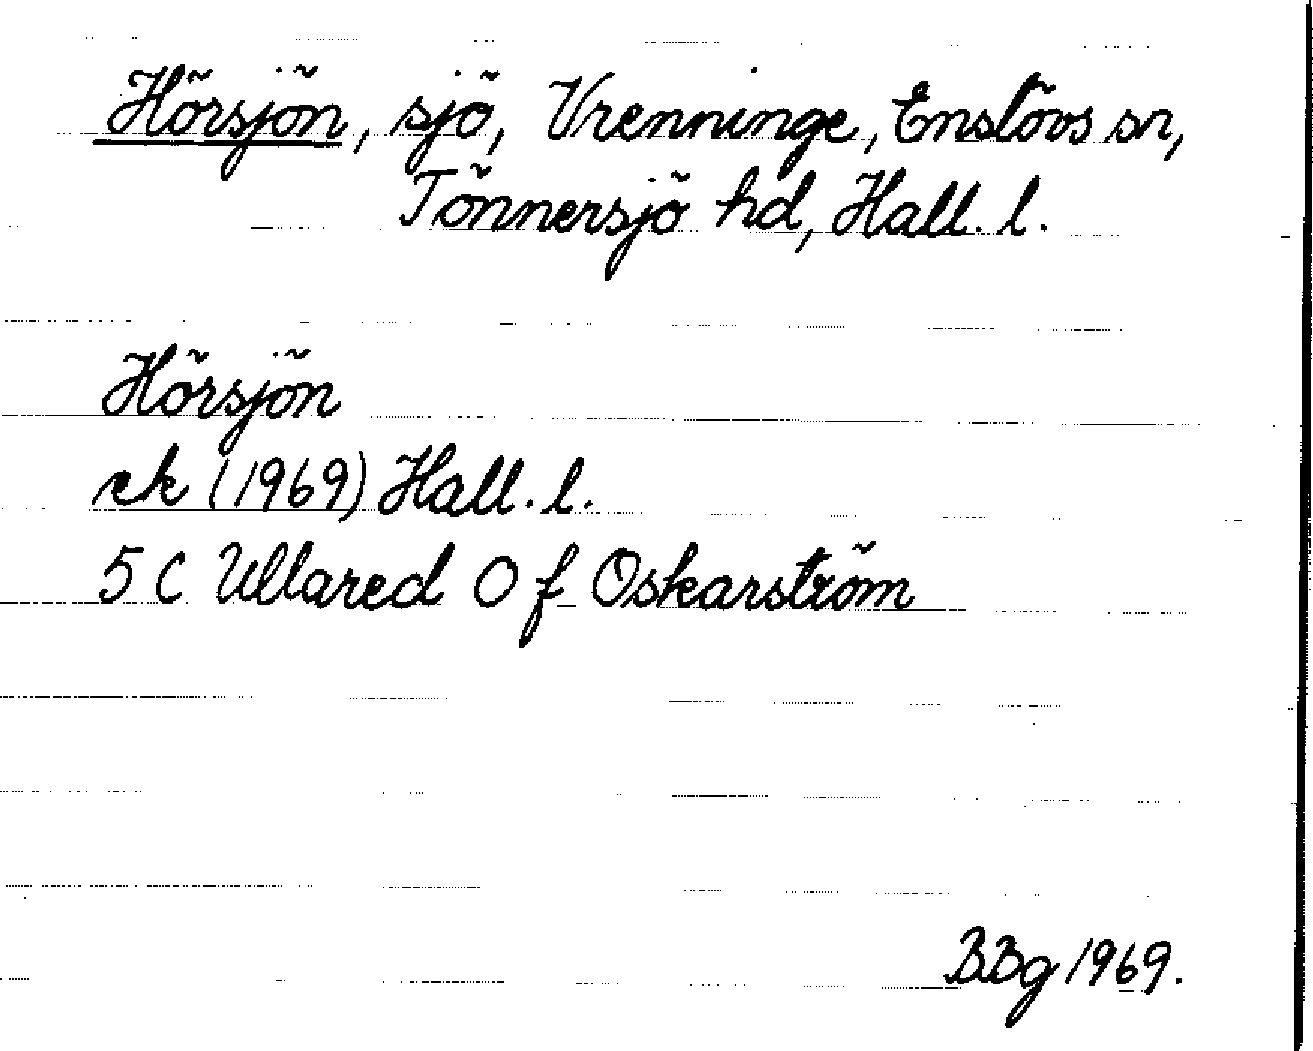 Hörsjön, sjö, Vrenninge, Enslövs sn,
Tönnersjö hd, Hall. l.
Hörsjön
ek (1969) Hall. l.
5 C Ullared 0 f Oskarström
BBg 1969.